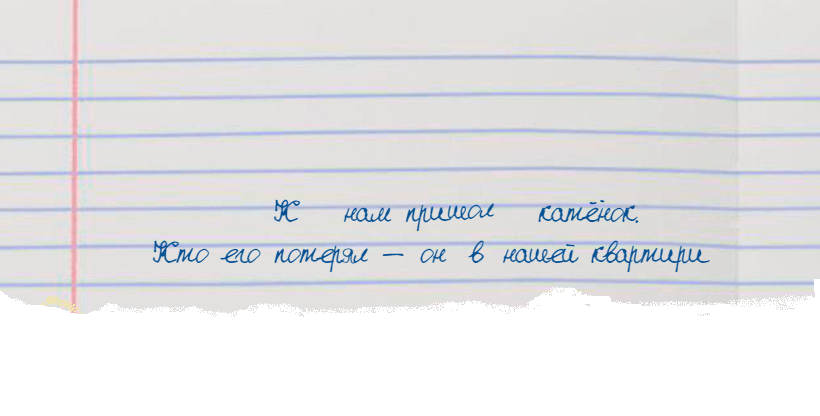 К нам пришол катёнок.
Кто его потерял — он в нашей квартири